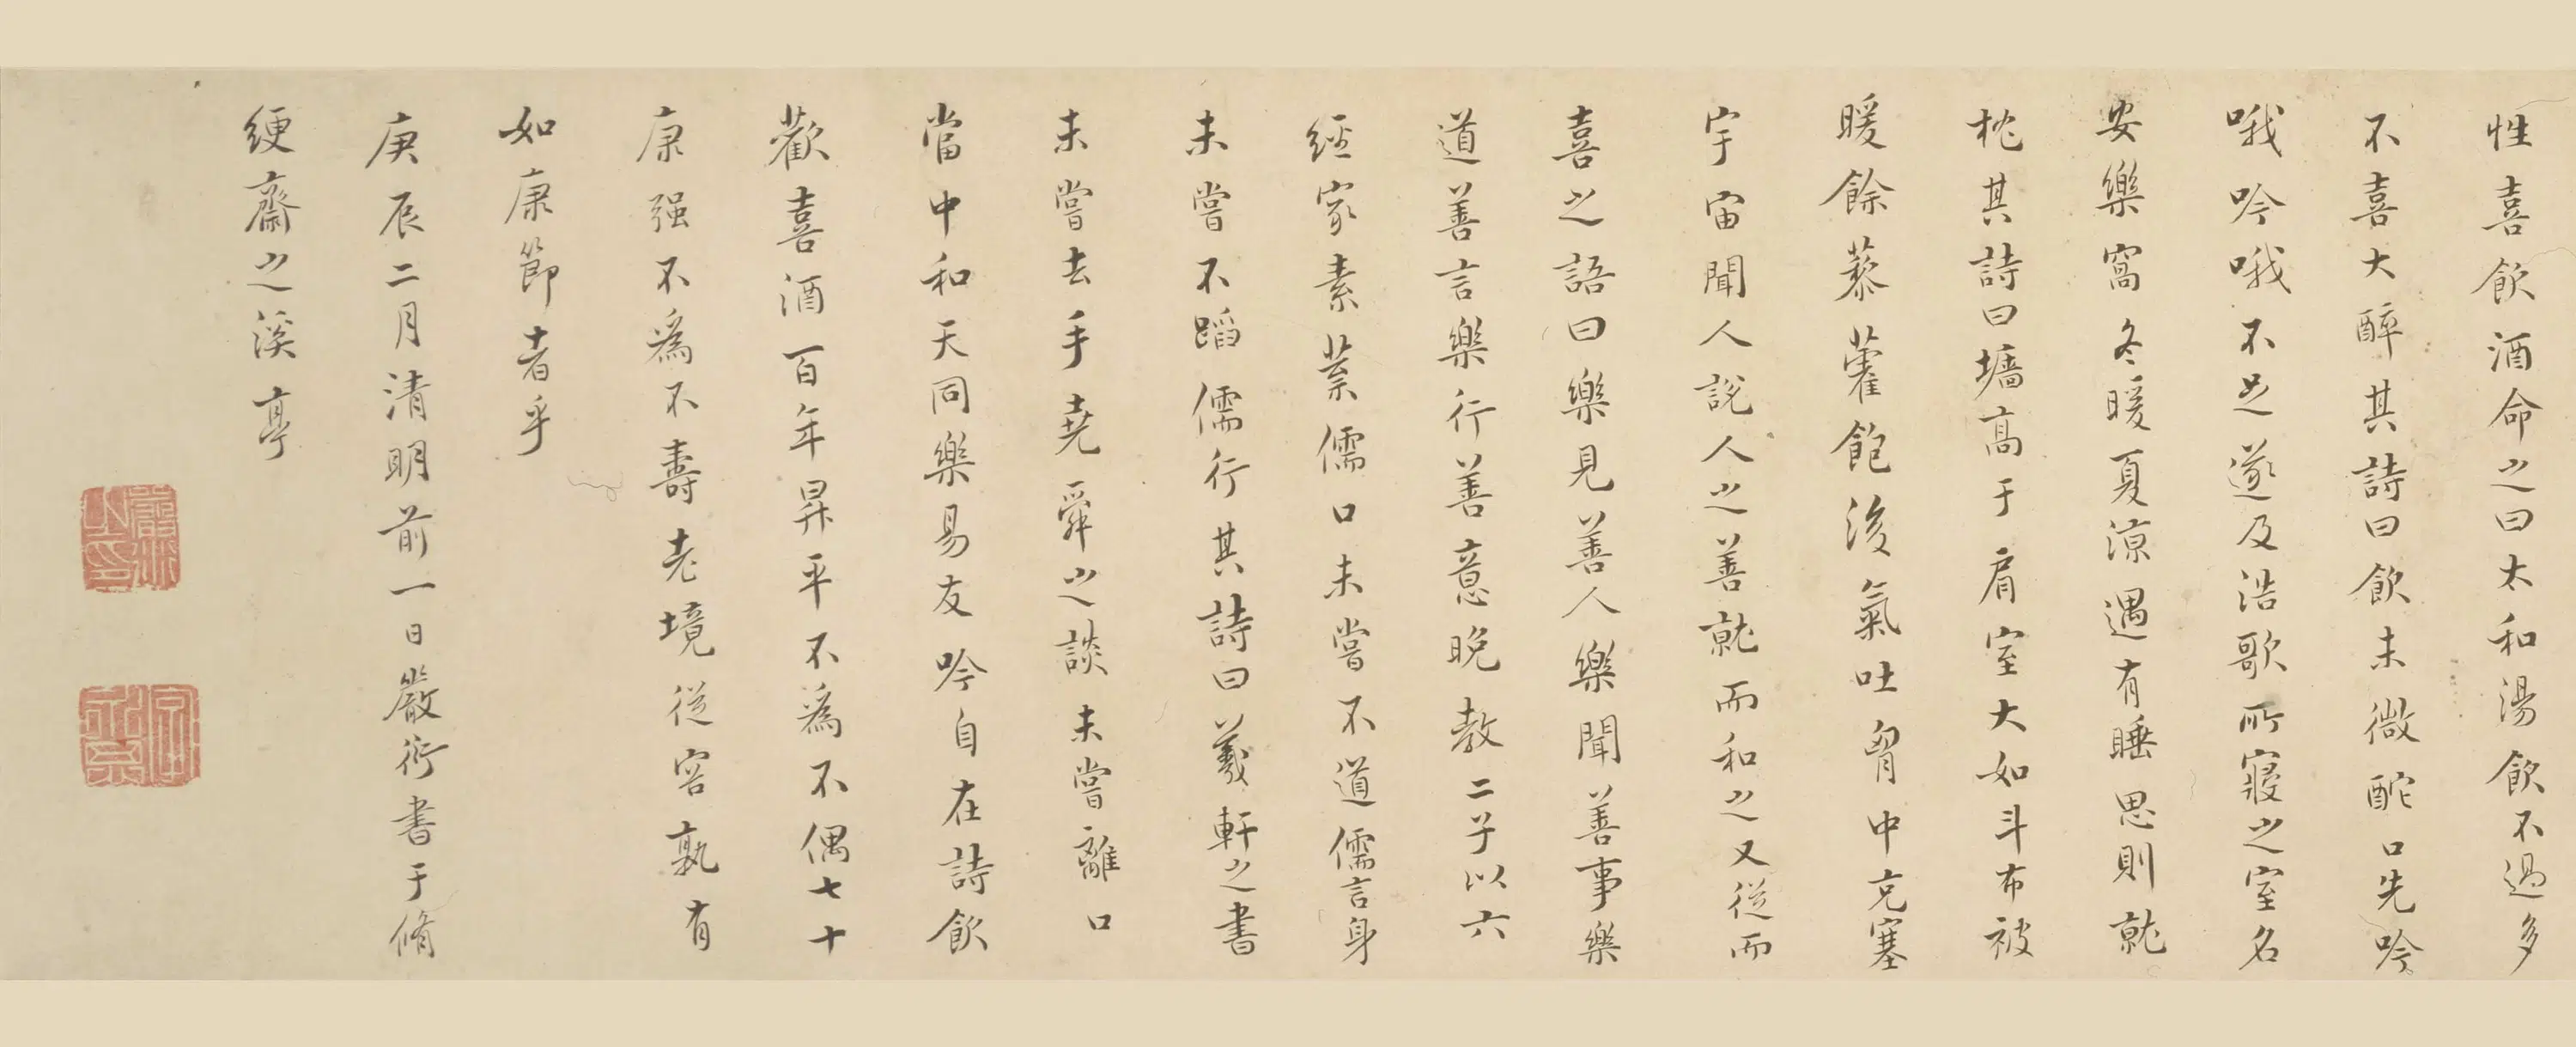 性喜飲酒命之曰太和湯飲不過多
不喜大醉其詩曰飲未微酡口先吟
哦吟哦不足遂及浩歌所寢之室名
安樂窩冬暖夏涼遇有睡思則就
枕其詩曰墻高于肩室大如斗布被
暖餘藜藿飽後氣吐胷中充塞
宇宙聞人說人之善就而和之又從而
喜之語曰樂見善人樂聞善事樂
道善言樂行善意晚教二子以六
經家素業儒口未嘗不道儒言身
未嘗不蹈儒行其詩曰羲軒之書
未嘗去手堯舜之談未嘗離口
當中和天同樂易友吟自在詩飲
歡喜酒百年昇平不為不偶七十
康强不為不壽老境從容孰有
如康節者乎
庚辰二月清明前一日嚴衍書于脩
綆齋之溪亭